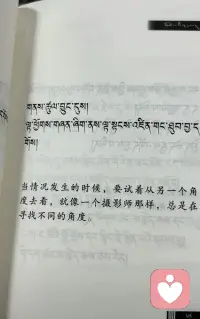 གནས་ཚུལ་བྱུང་དུས།
ལྟ་ཕྱོགས་གཞན་ཞིག་ནས་ལྟ་སྟངས་འཛིན་གང་ཐུབ་བྱ་ད
གོས།
当情况发生的时候，要试着从另一个角
度去看，就像一个摄影师那样，总是在
寻找不同的角度。